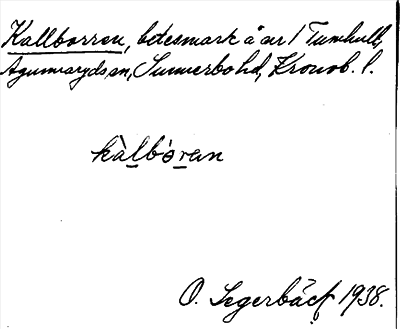 Kallborren, betesmark å ar 1 Tunhult,
Agunnaryds sn, Sunnerbo hd, Kronob. l.
kàlbòran
O. Segerbäck 1938.